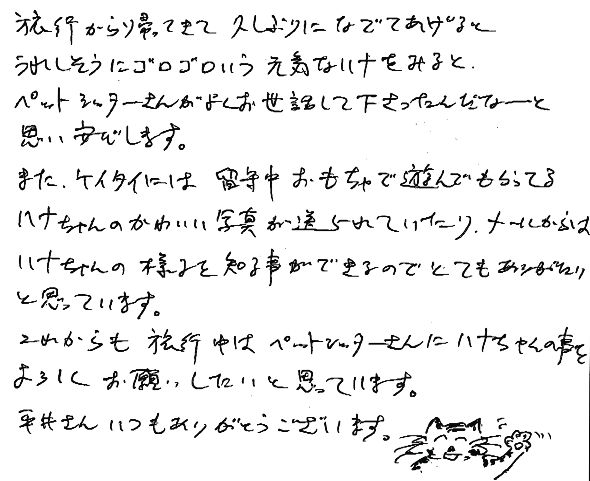 旅行から帰ってきて 久しぶりになでてあげると
うれしそうにゴロゴロいう 元気なハナをみると、
ペットシッターさんがよくお世話して下さったんだなーと
思い 安心します。
また、ケイタイには 留守中 おもちゃで遊んでもらってる
ハナちゃんのかわいい写真が送られていたり、メールからは
ハナちゃんの様子を知る事ができるのでとてもありがたい
と思っています。
これからも 旅行中は ペットシッターさんにハナちゃんの事を
よろしく お願いしたいと思っています。
平井さん いつもありがとうございます。